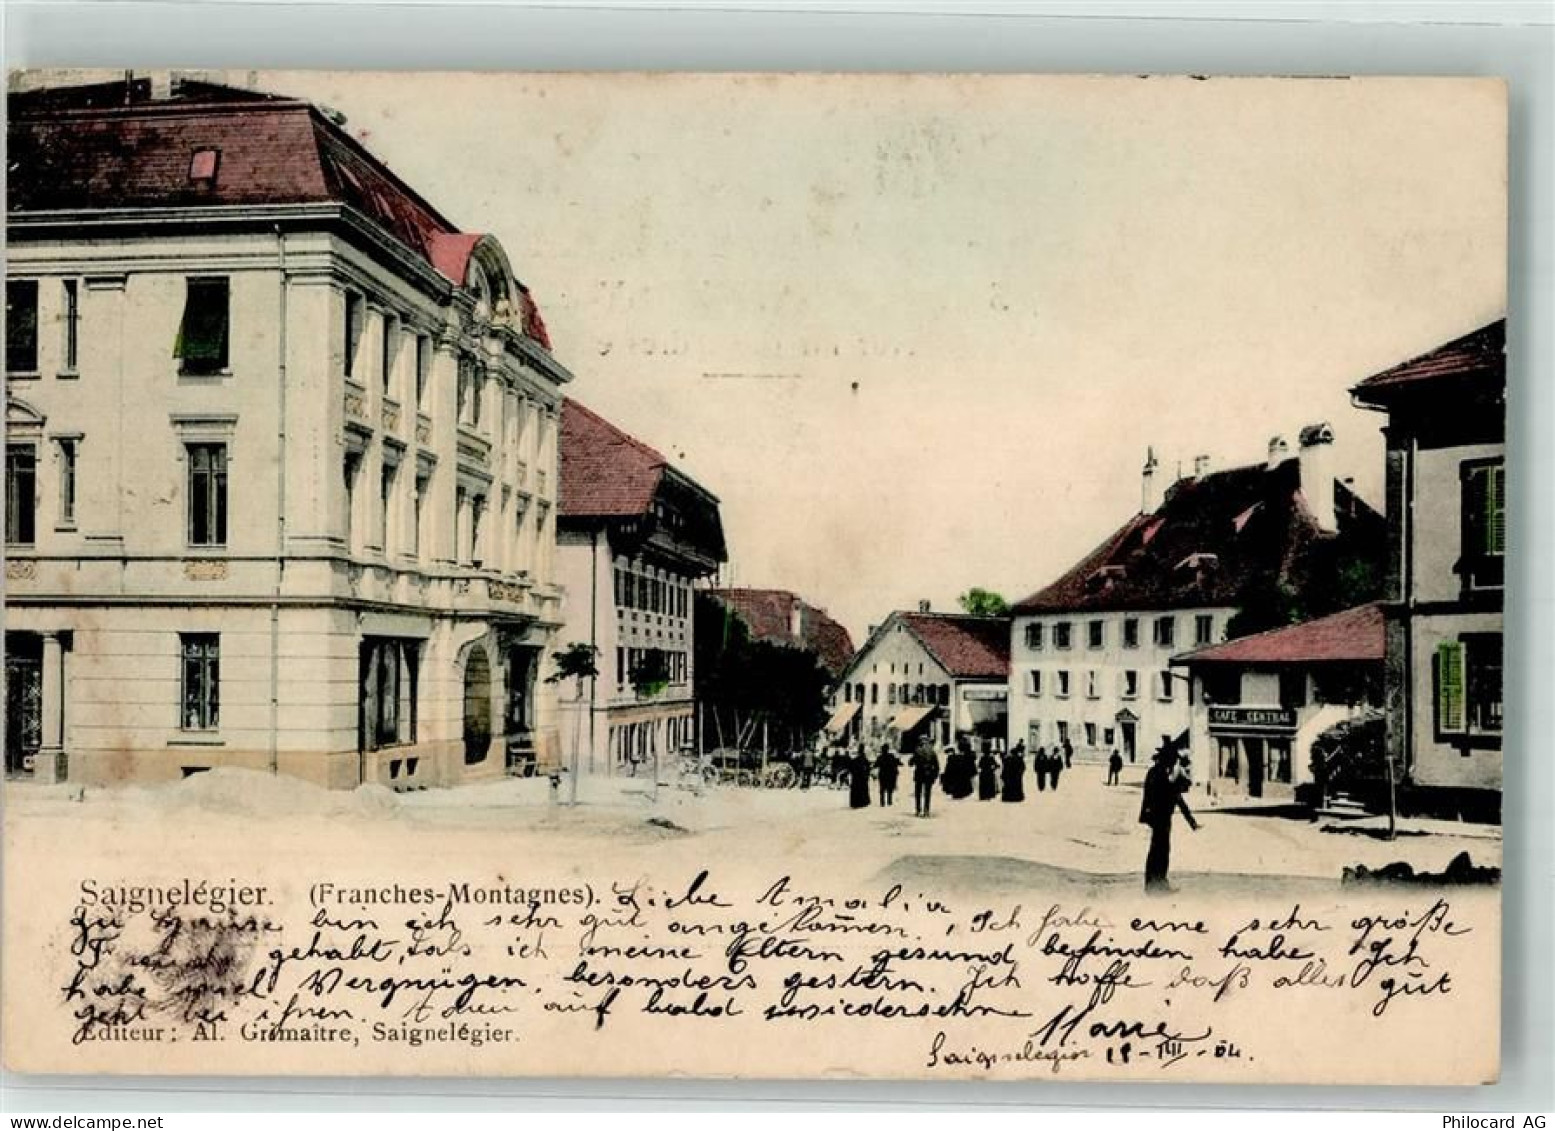 CAFÉ CENTRAL
Saignelégier. (Franches-Montagnes). Liebe Amalia
zu Hause bin ich sehr gut angekommen. Ich habe eine sehr große
Freude gehabt, als ich meine Eltern gesund befinden habe. Ich
habe viel Vergnügen, besonders gestern. Ich hoffe daß alles gut
geht bei ihnen. Adieu auf bald wiedersehn
Marie
Editeur: Al. Grimaître, Saignelégier.
Saignelégier - VIII - 04.
Philocard AG